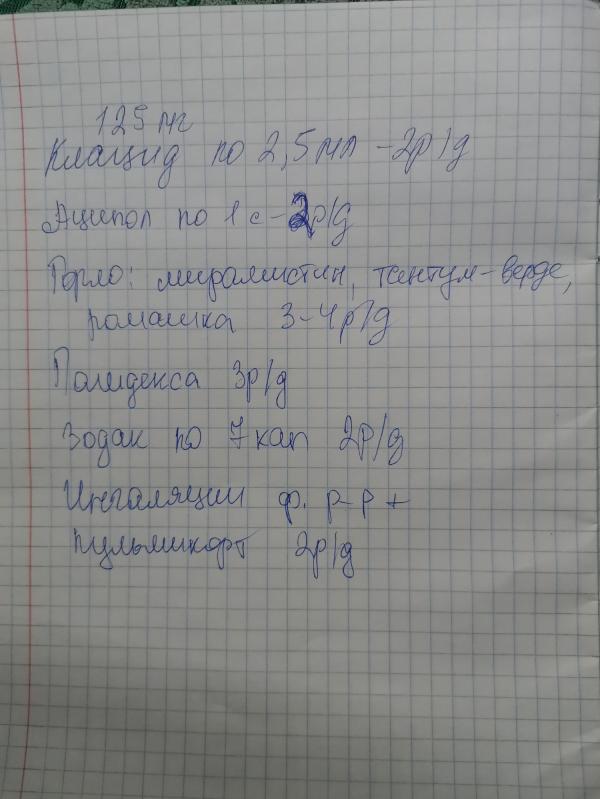 125 мг
Клацид по 2,5 мл - 2р/д
Аципол по 1 с - 2р/д
Горло: мирамистин, тантум-верде,
ромашка 3-4р/д
Полидекса 3р/д
Зодак по 7 кап 2р/д
Ингаляции ф. р-р +
пульмикорт 2р/д